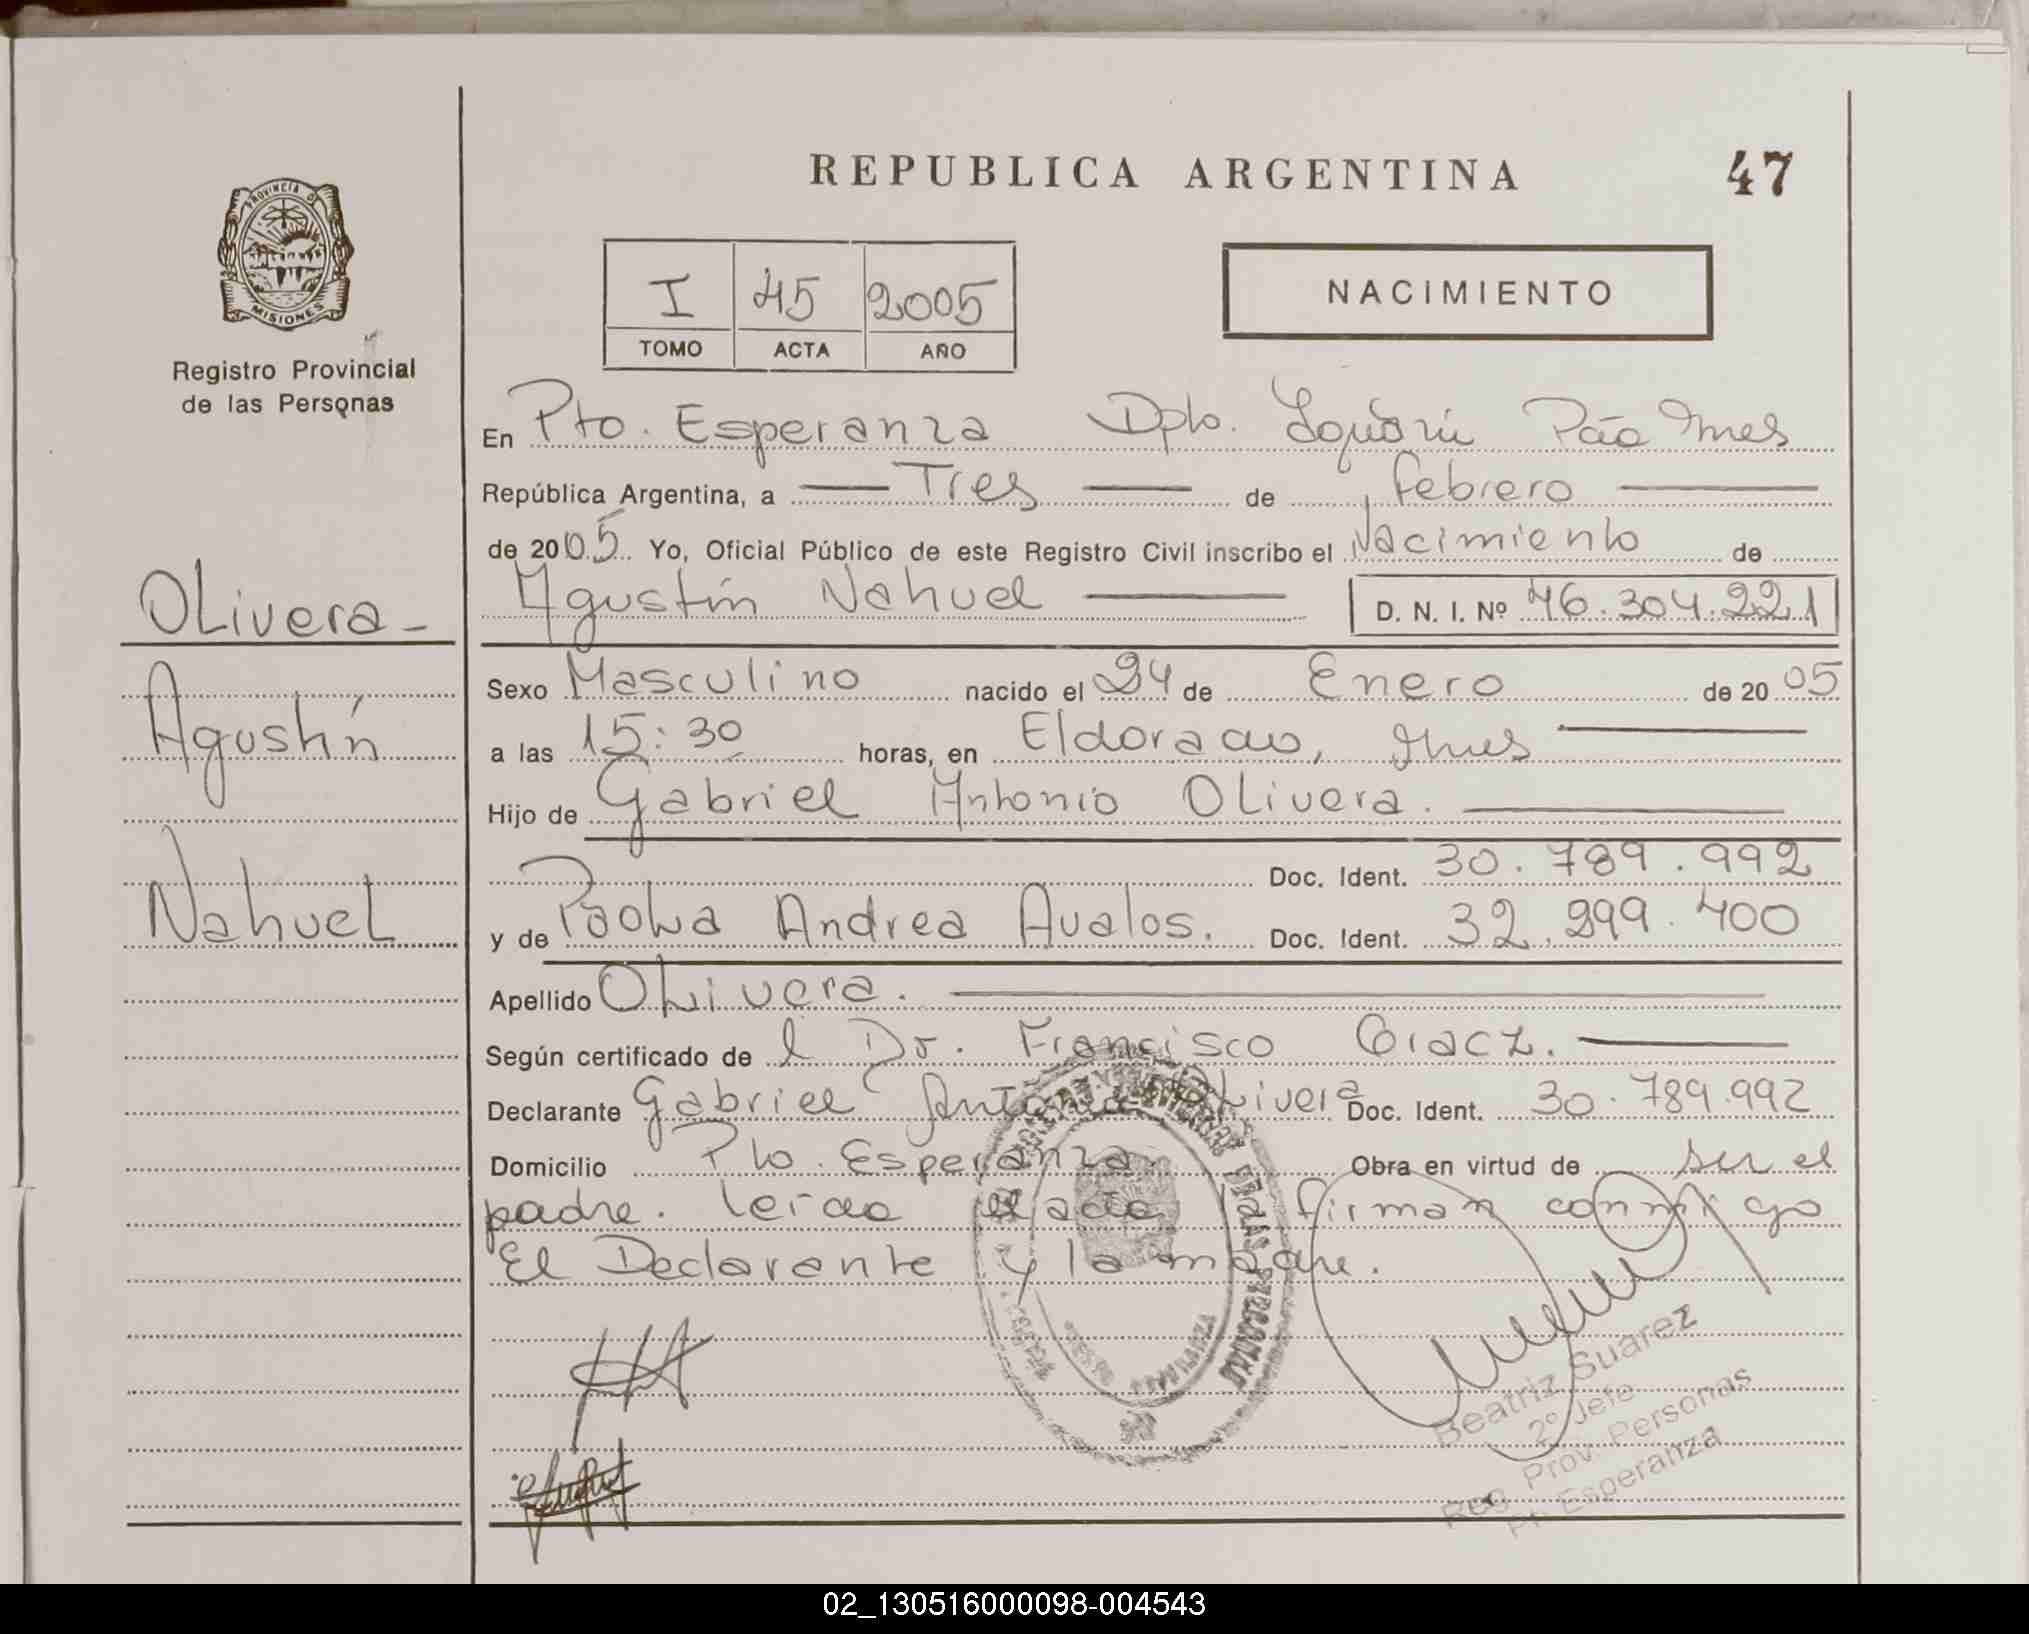 REPUBLICA ARGENTINA
47
PROVINCIA D
MISIONES
Registro Provincial
de las Personas
I 45 2005
TOMO ACTA AÑO
NACIMIENTO
En Pto. Esperanza Dpto. Iguazú Mnes
República Argentina, a Tres de febrero
de 2005 Yo, Oficial Público de este Registro Civil inscribo el Nacimiento de
Agustín Nahuel D. N. I. Nº 46.304.221
Olivera
Sexo Masculino nacido el 24 de Enero de 2005
Agustín
a las 15:30 horas, en Eldorado, Mnes
Hijo de Gabriel Antonio Olivera.
Doc. Ident. 30.789.992
Nahuel
y de Paola Andrea Avalos. Doc. Ident. 32.299.400
Apellido Olivera.
Según certificado de l Dr. Francisco
Declarante Gabriel Antonio Olivera Doc. Ident. 30.789.992
Domicilio Pto. Esperanza Obra en virtud de ser el
padre. Leida el acta la firman conmigo
El Declarante y la madre.
Beatriz Suarez
2º Jefe
Reg. Prov. Personas
Pt. Esperanza
02_130516000098-004543